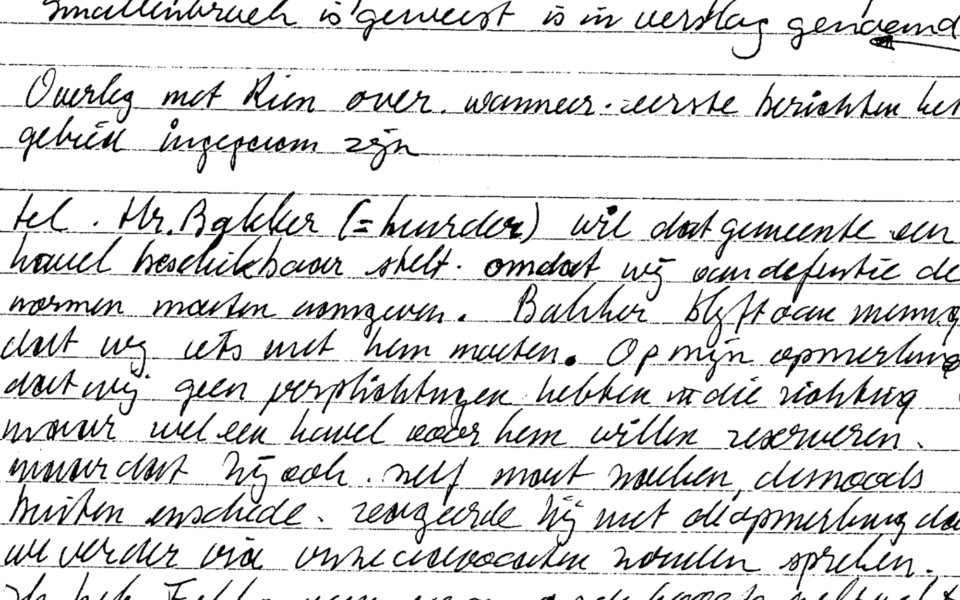 Smallenbroek is geweest is in verslag genoemd
Overleg met Rien over wanneer eerste berichten het
gebied ingegaan zijn
tel. Hr. Bakker (= huurder) wil dat gemeente een
kavel beschikbaar stelt. omdat wij aan defensie de
normen moeten aangeven. Bakker blijft van mening
dat wij iets met hem moeten. Op mijn opmerking
dat wij geen verplichtingen hebben in die richting
maar wel een kavel voor hem willen reserveren.
maar dat hij ook zelf moet zoeken, desnoods
buiten enschede. reageerde hij met de opmerking dat
we verder via onze advocaten zouden spreken.
Ik heb